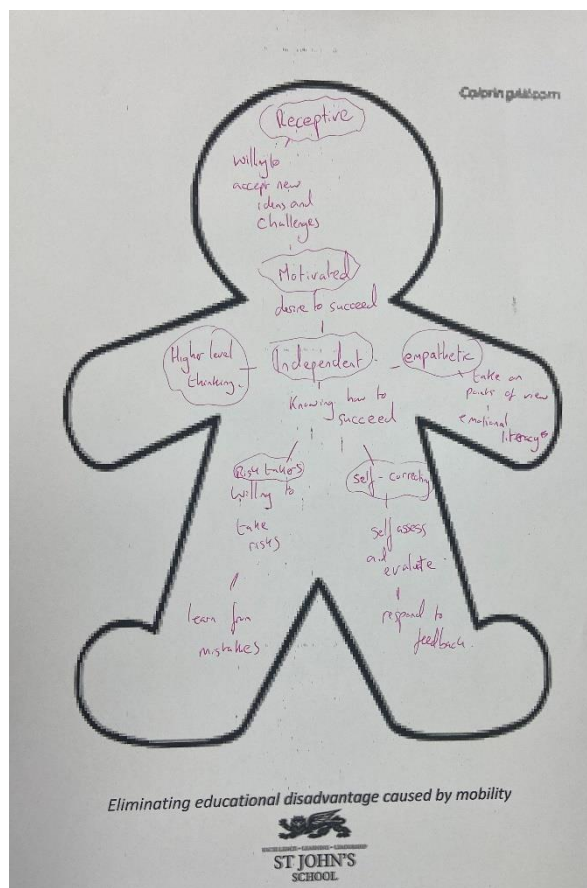 Coloring4All.com
Receptive
willing to
accept new
ideas and
challenges
Motivated
desire to succeed
Higher level
thinking.
Independent
empathetic
Knowing how to
succeed
take on
points of view
emotional
literacy
Risk takers
willing to
take
risks
learn from
mistakes
self-correcting
self assess
and
evaluate
respond to
feedback.
Eliminating educational disadvantage caused by mobility
EXCELLENCE · LEARNING · LEADERSHIP
ST JOHN'S
SCHOOL